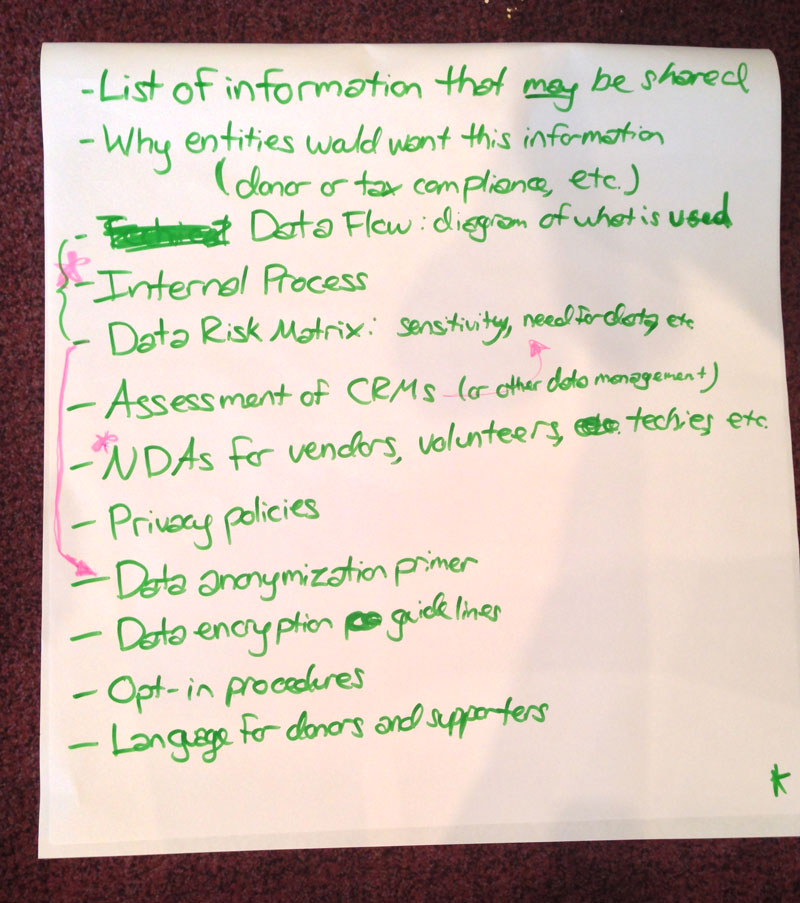 - List of information that may be shared
- Why entities would want this information
(donor or tax compliance, etc.)
- Data Flow: diagram of what is used
- Internal Process
- Data Risk Matrix: sensitivity, need for data, etc
- Assessment of CRMs (or other data management)
- NDAs for vendors, volunteers, techies etc.
- Privacy policies
- Data anonymization primer
- Data encryption guidelines
- Opt-in procedures
- Language for donors and supporters